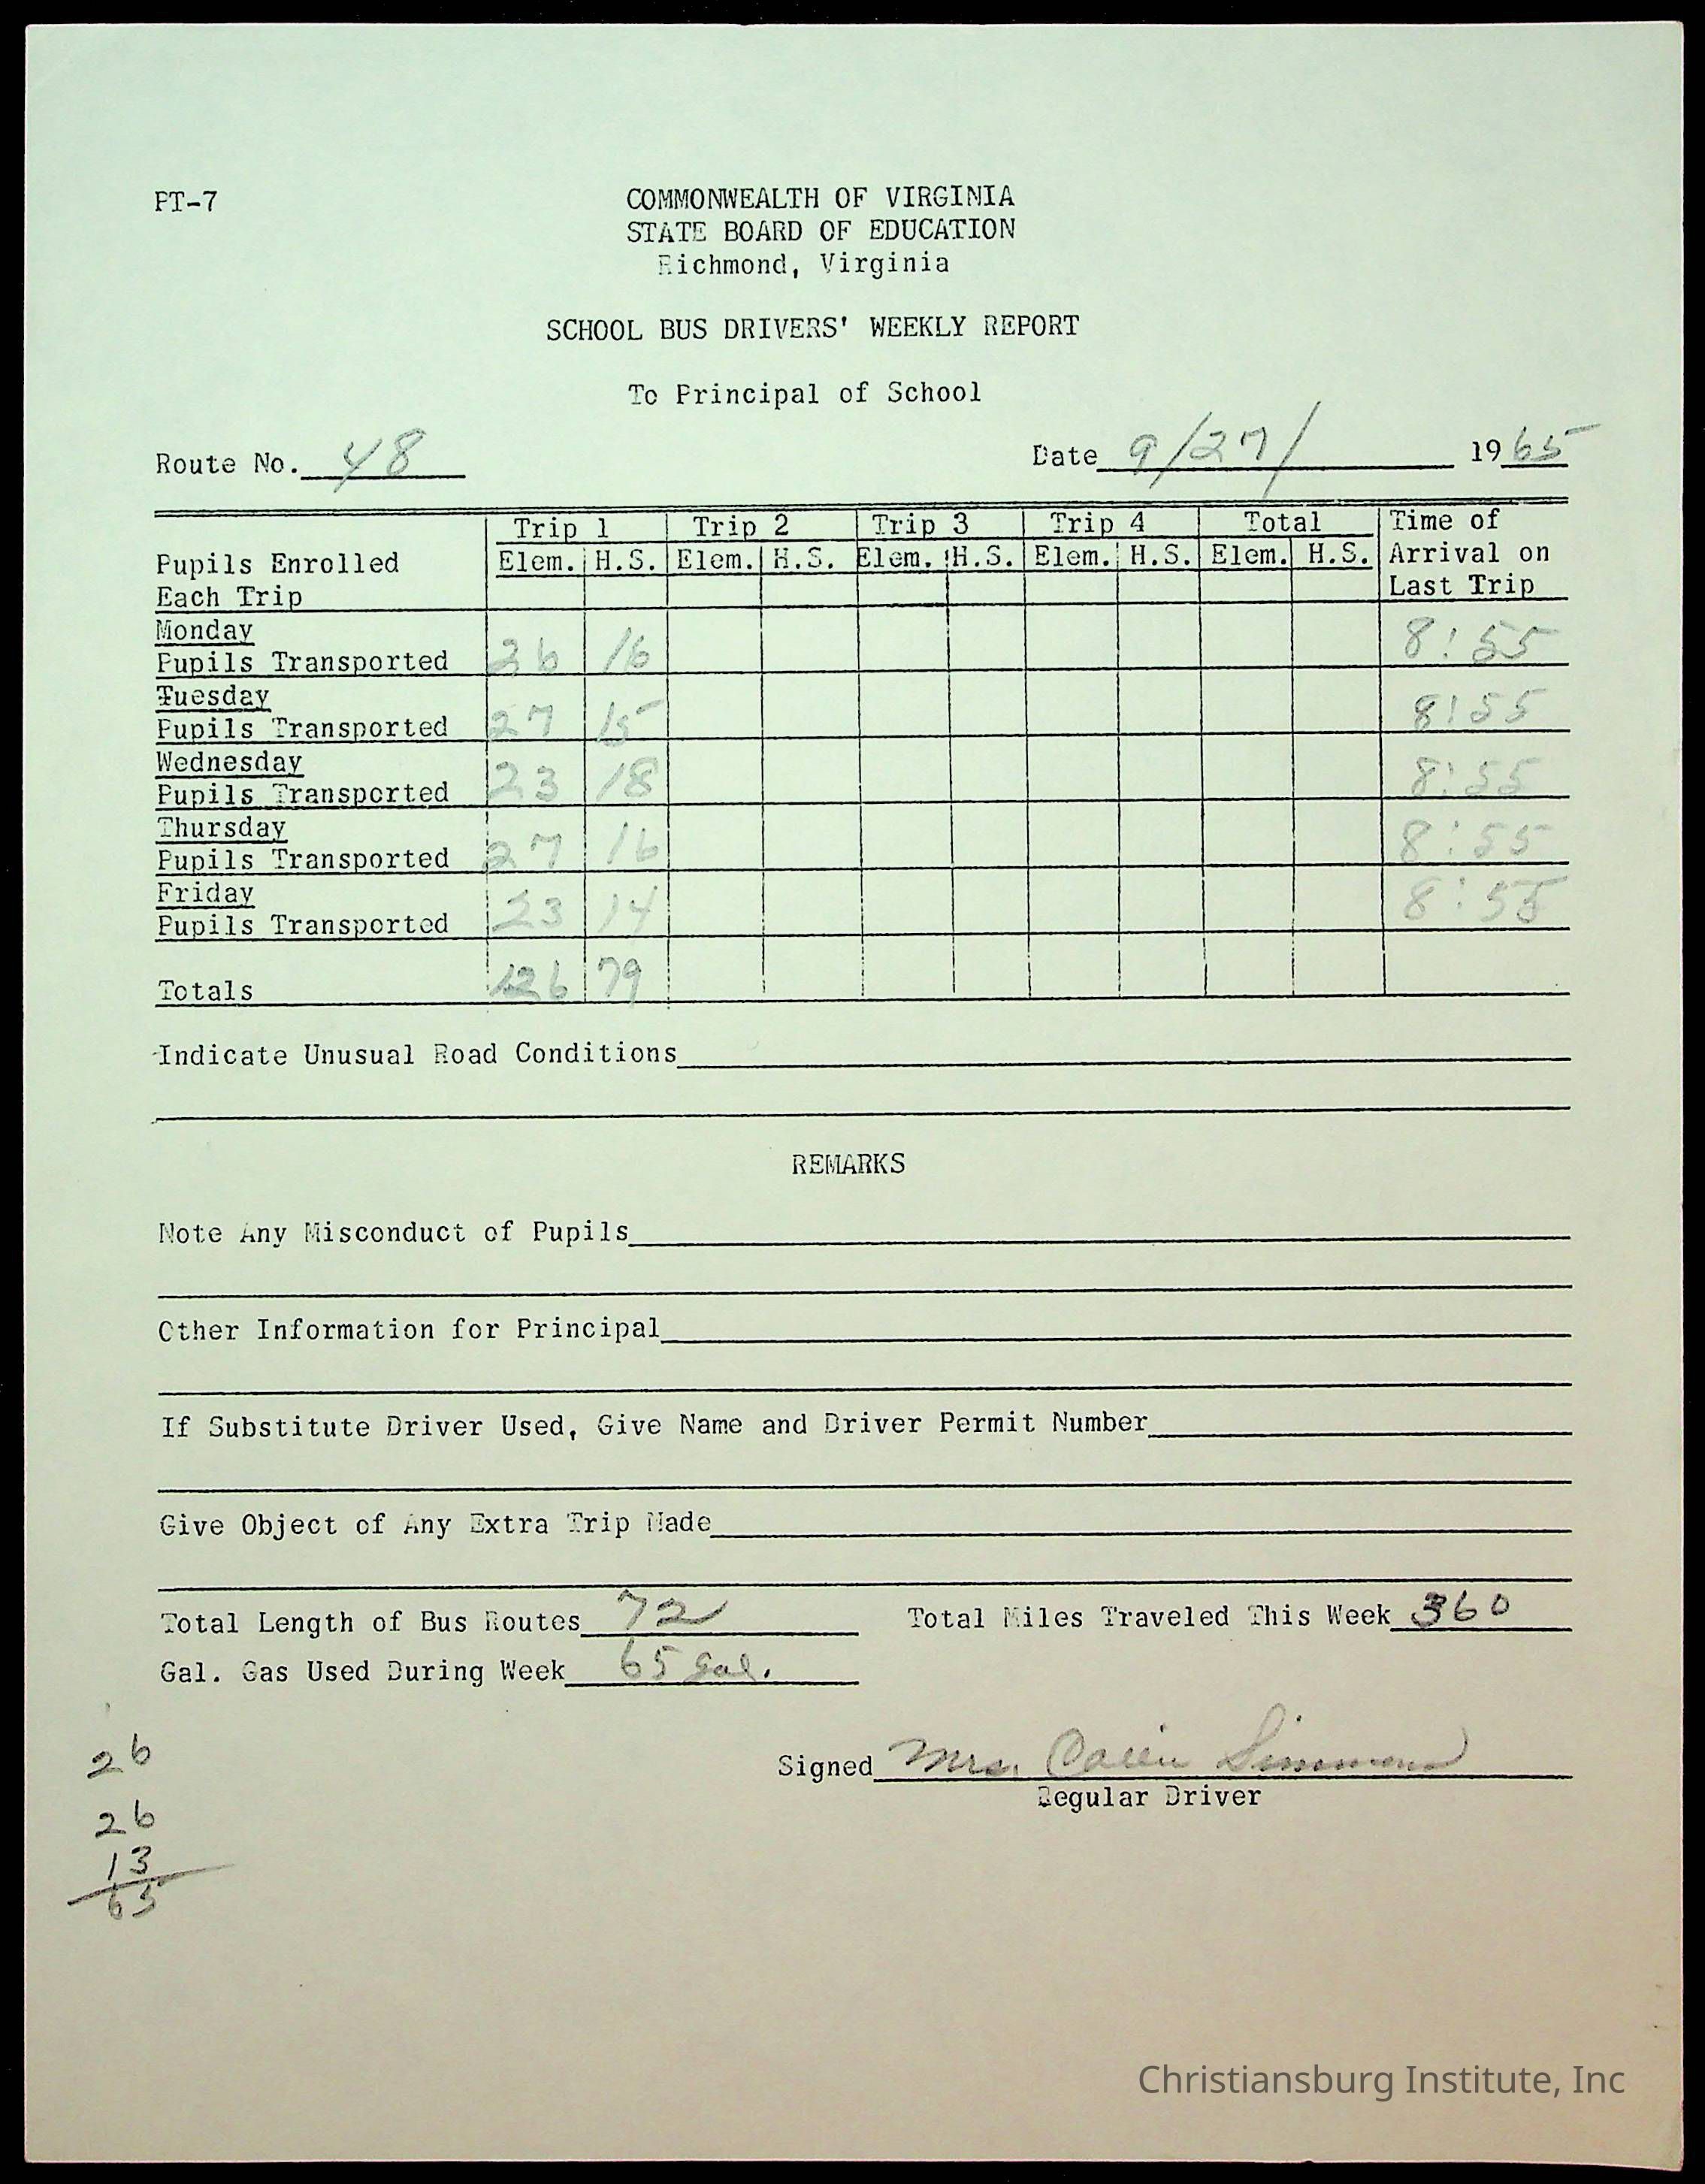 PT-7
COMMONWEALTH OF VIRGINIA
STATE BOARD OF EDUCATION
Richmond, Virginia
SCHOOL BUS DRIVERS' WEEKLY REPORT
To Principal of School
Route No. 48 Date 9/27/ 1965
Trip 1 Trip 2 Trip 3 Trip 4 Total Time of
Pupils Enrolled Elem. H.S. Elem. H.S. Elem. H.S. Elem. H.S. Elem. H.S. Arrival on
Each Trip Last Trip
Monday
Pupils Transported 26 16 8:55
Tuesday
Pupils Transported 27 15 8:55
Wednesday
Pupils Transported 23 18 8:55
Thursday
Pupils Transported 27 16 8:55
Friday
Pupils Transported 23 14 8:55
Totals 126 79
Indicate Unusual Road Conditions
REMARKS
Note Any Misconduct of Pupils
Other Information for Principal
If Substitute Driver Used, Give Name and Driver Permit Number
Give Object of Any Extra Trip Made
Total Length of Bus Routes 72 Total Miles Traveled This Week 360
Gal. Gas Used During Week 65 gal.
26
26
13
65
Signed Mrs. Simmons
Regular Driver
Christiansburg Institute, Inc